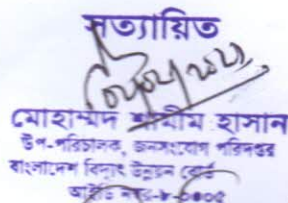 সত্যায়িত
মোহাম্মদ শামীম হাসান
উপ-পরিচালক, জনসংযোগ পরিদপ্তর
বাংলাদেশ বিদ্যুৎ উন্নয়ন বোর্ড
আইডি